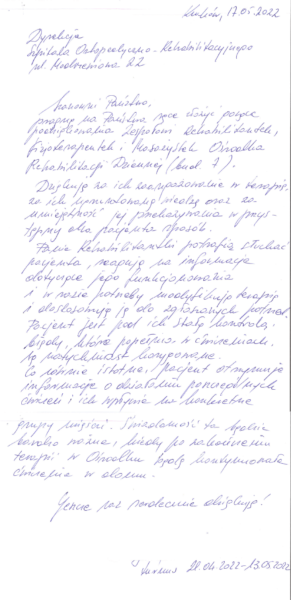 Kraków, 17.05.2022
Dyrekcja
Szpitala Ortopedyczno-Rehabilitacyjnego
ul. Modrzewiowa 22
Szanowni Państwo,
pragnę na Państwa ręce złożyć
podziękowania Zespołowi Rehabilitantek,
Fizjoterapeutek i Masażystek Ośrodka
Rehabilitacji Dziennej (bud. 7).
Dziękuję za ich zaangażowanie w terapię,
za ich wiedzę oraz za
umiejętność jej przekazywania w przys-
tępny dla pacjenta sposób.
Panie Rehabilitantki potrafią słuchać
pacjenta, reagują na informacje
dotyczące jego funkcjonowania
i w razie potrzeby modyfikują terapię
i dostosowują ją do zgłaszanych potrzeb.
Pacjent jest pod ich stałą kontrolą.
Błędy, które popełnia w ćwiczeniach
są natychmiast korygowane.
Co równie istotne, pacjent otrzymuje
informacje o działaniu poszczególnych
ćwiczeń i ich wpływie na konkretne
grupy mięśni. Świadomość ta będzie
bardzo ważna, kiedy po zakończeniu
terapii w Ośrodku będę kontynuowała
ćwiczenia w domu.
Jeszcze raz serdecznie dziękuję!
turnus 22.04.2022-13.05.2022